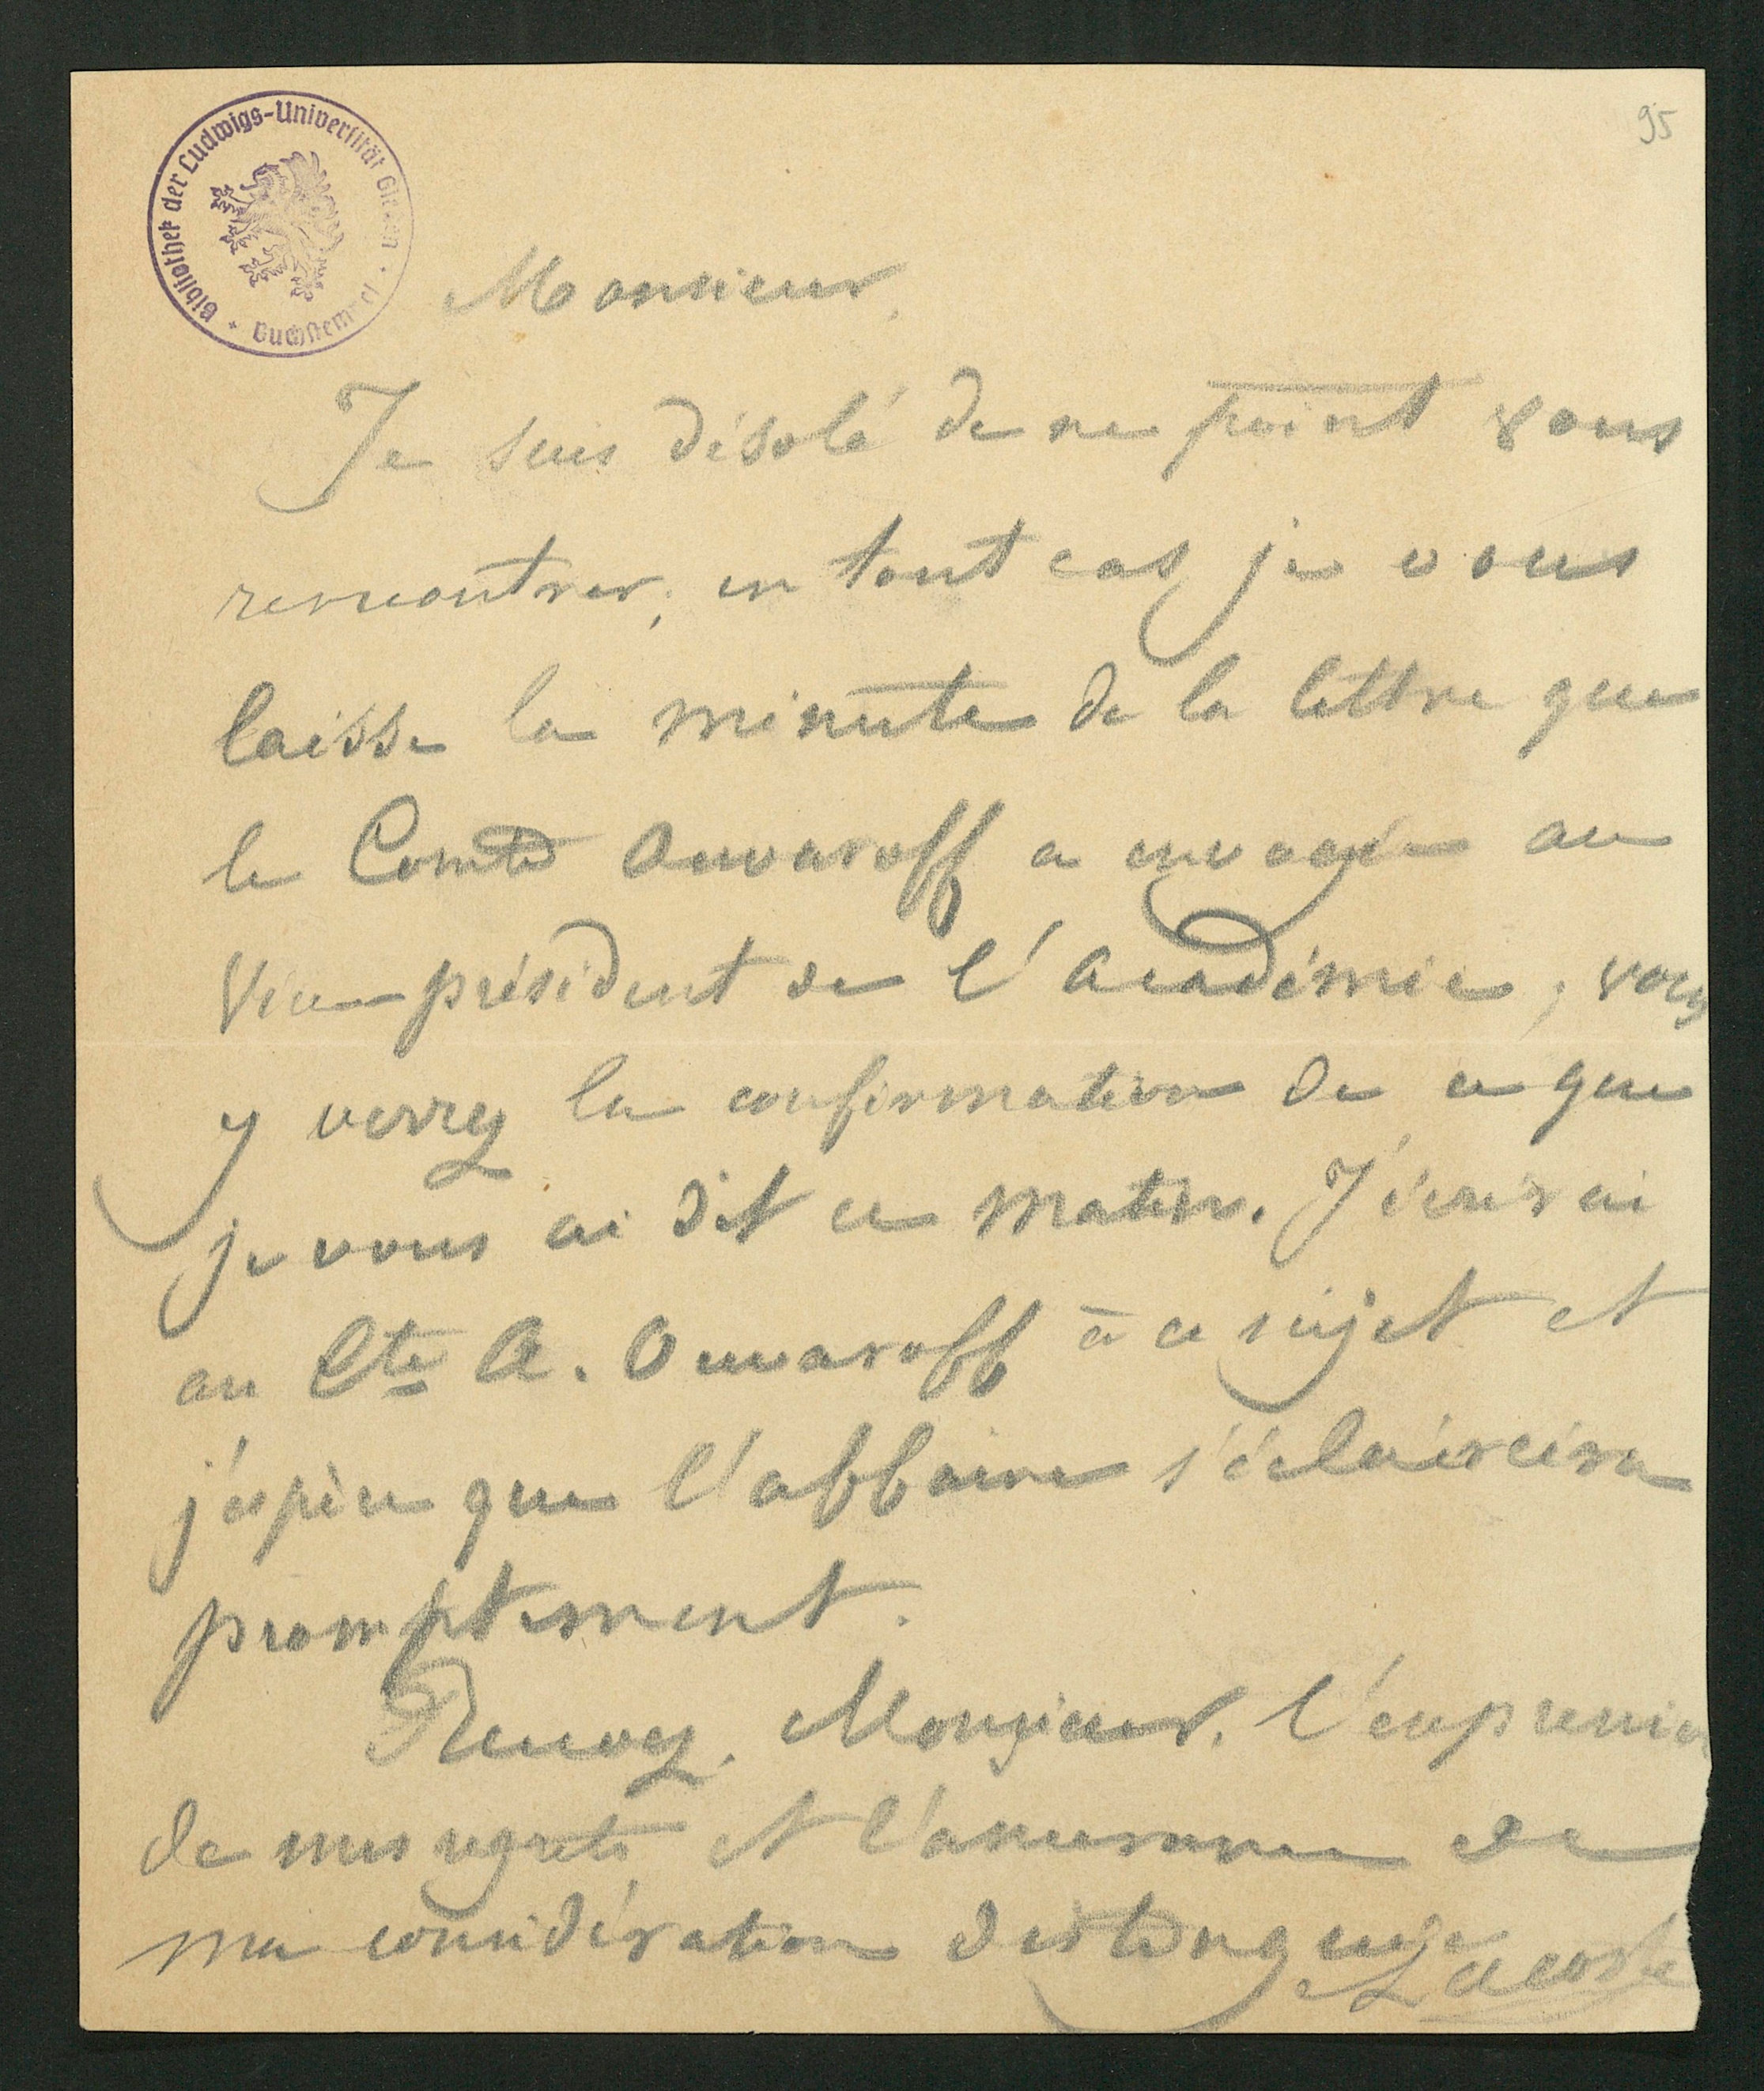 95
Bibliothek der Ludwigs-Universität Gießen
Buchstempel
Monsieur,
Je suis désolé de ne point vous
rencontrer, en tout cas je vous
laisse la minute de la lettre que
le Comte Ouvaroff a envoyée au
Vice président de l'Académie; vous
y verrez la confirmation de ce que
je vous ai dit ce matin. J'écrirai
au Cte A. Ouvaroff à ce sujet et
j'espère que l'affaire s'éclaircira
promptement.
Recevez, Monsieur, l'expression
de mes regrets et l'assurance de
ma considération distinguée
Lacoste